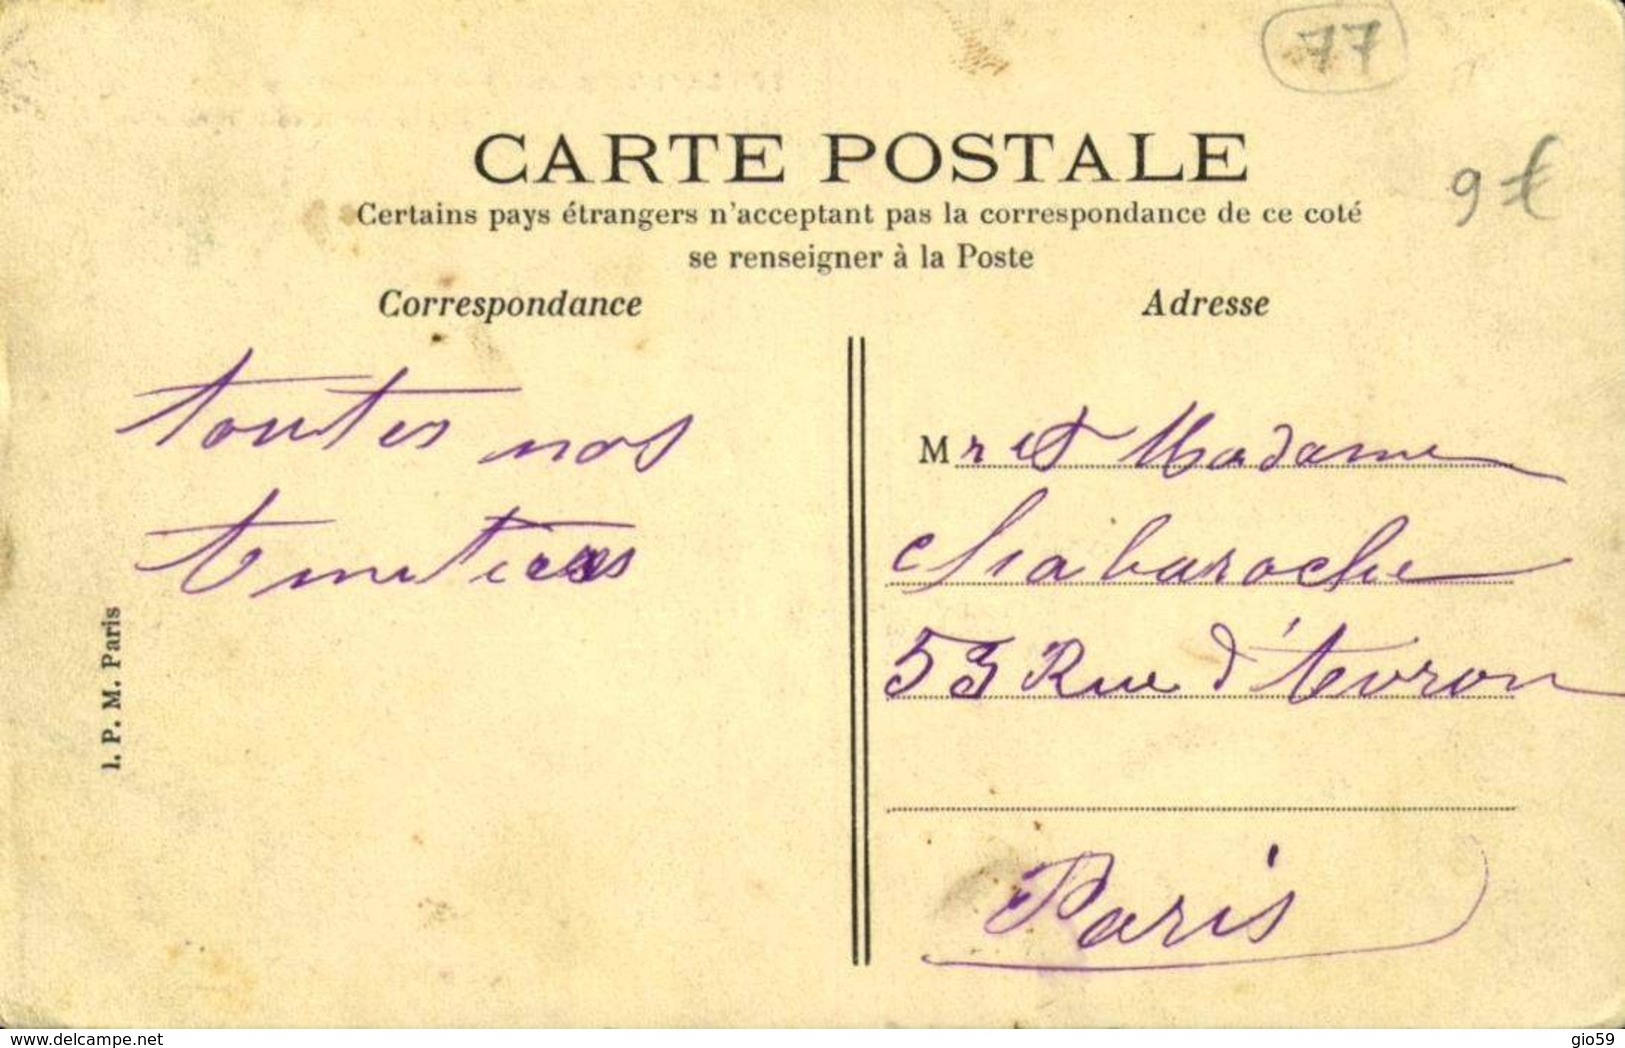 77
CARTE POSTALE
9 €
Certains pays étrangers n'acceptant pas la correspondance de ce coté
se renseigner à la Poste
Correspondance
Adresse
toutes nos
Mr et Madame
Chabaroche
53 Rue d'Avron
Paris
I. P. M. Paris
www.delcampe.net
gio59